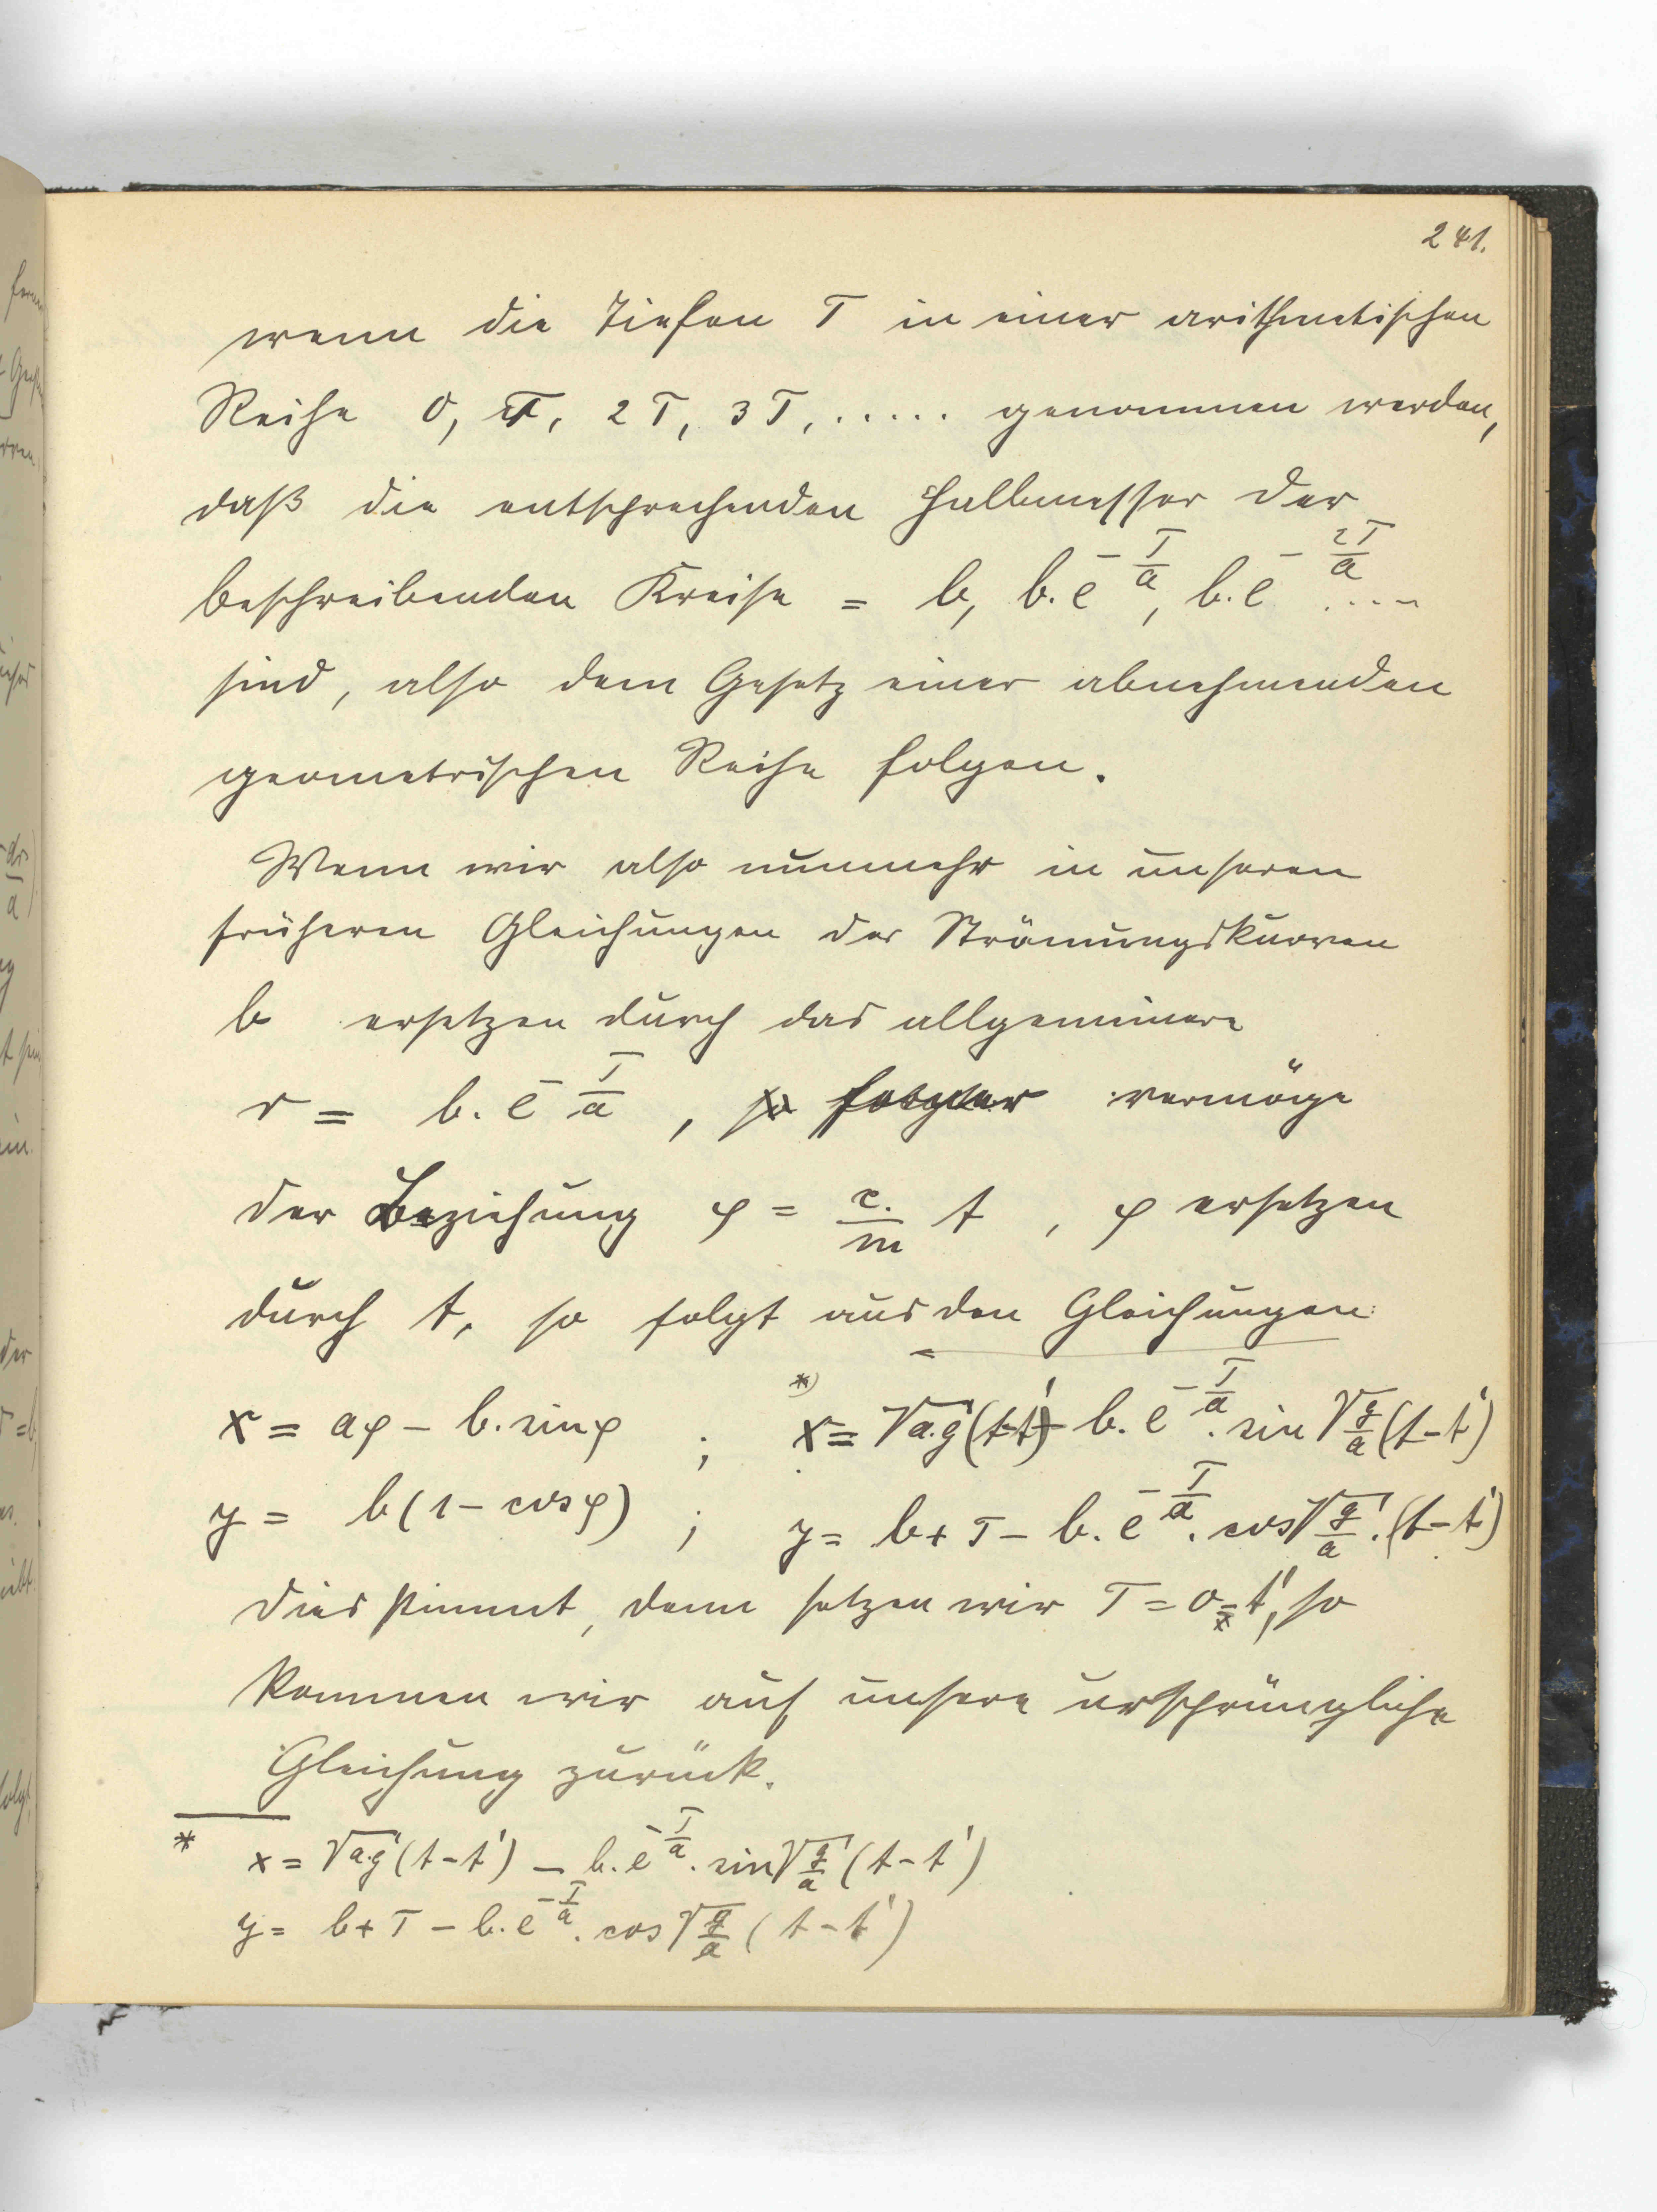 241.
wenn die Tiefen T in einer arithmetischen
Reihe 0, T, 2T, 3T, ..... genommen werden,
daß die entsprechenden Halbmesser der
beschreibenden Kreise = b, b.e^{-T/a}, b.e^{-2T/a} ....
sind, also dem Gesetz einer abnehmenden
geometrischen Reihe folgen.
Wenn wir also nunmehr in unseren
früheren Gleichungen der Strömungskurven
b ersetzen durch das allgemeinere
r = b.e^{-T/a}, vermöge
der Beziehung φ = c./m t, φ ersetzen
durch t, so folgt aus den Gleichungen:
x = aφ - b.sinφ ; *) x = √a.g (t-t') - b.e^{-T/a}. sin √g/a (t-t')
y = b(1-cosφ) ; y = b+T - b.e^{-T/a}. cos √g/a .(t-t')
dies stimmt, denn setzen wir T = 0 = t', so
kommen wir auf unsere ursprüngliche
Gleichung zurück.
* x = √a.g (t-t') - b.e^{-T/a}. sin √g/a (t-t')
y = b+T - b.e^{-T/a}. cos √g/a (t-t')